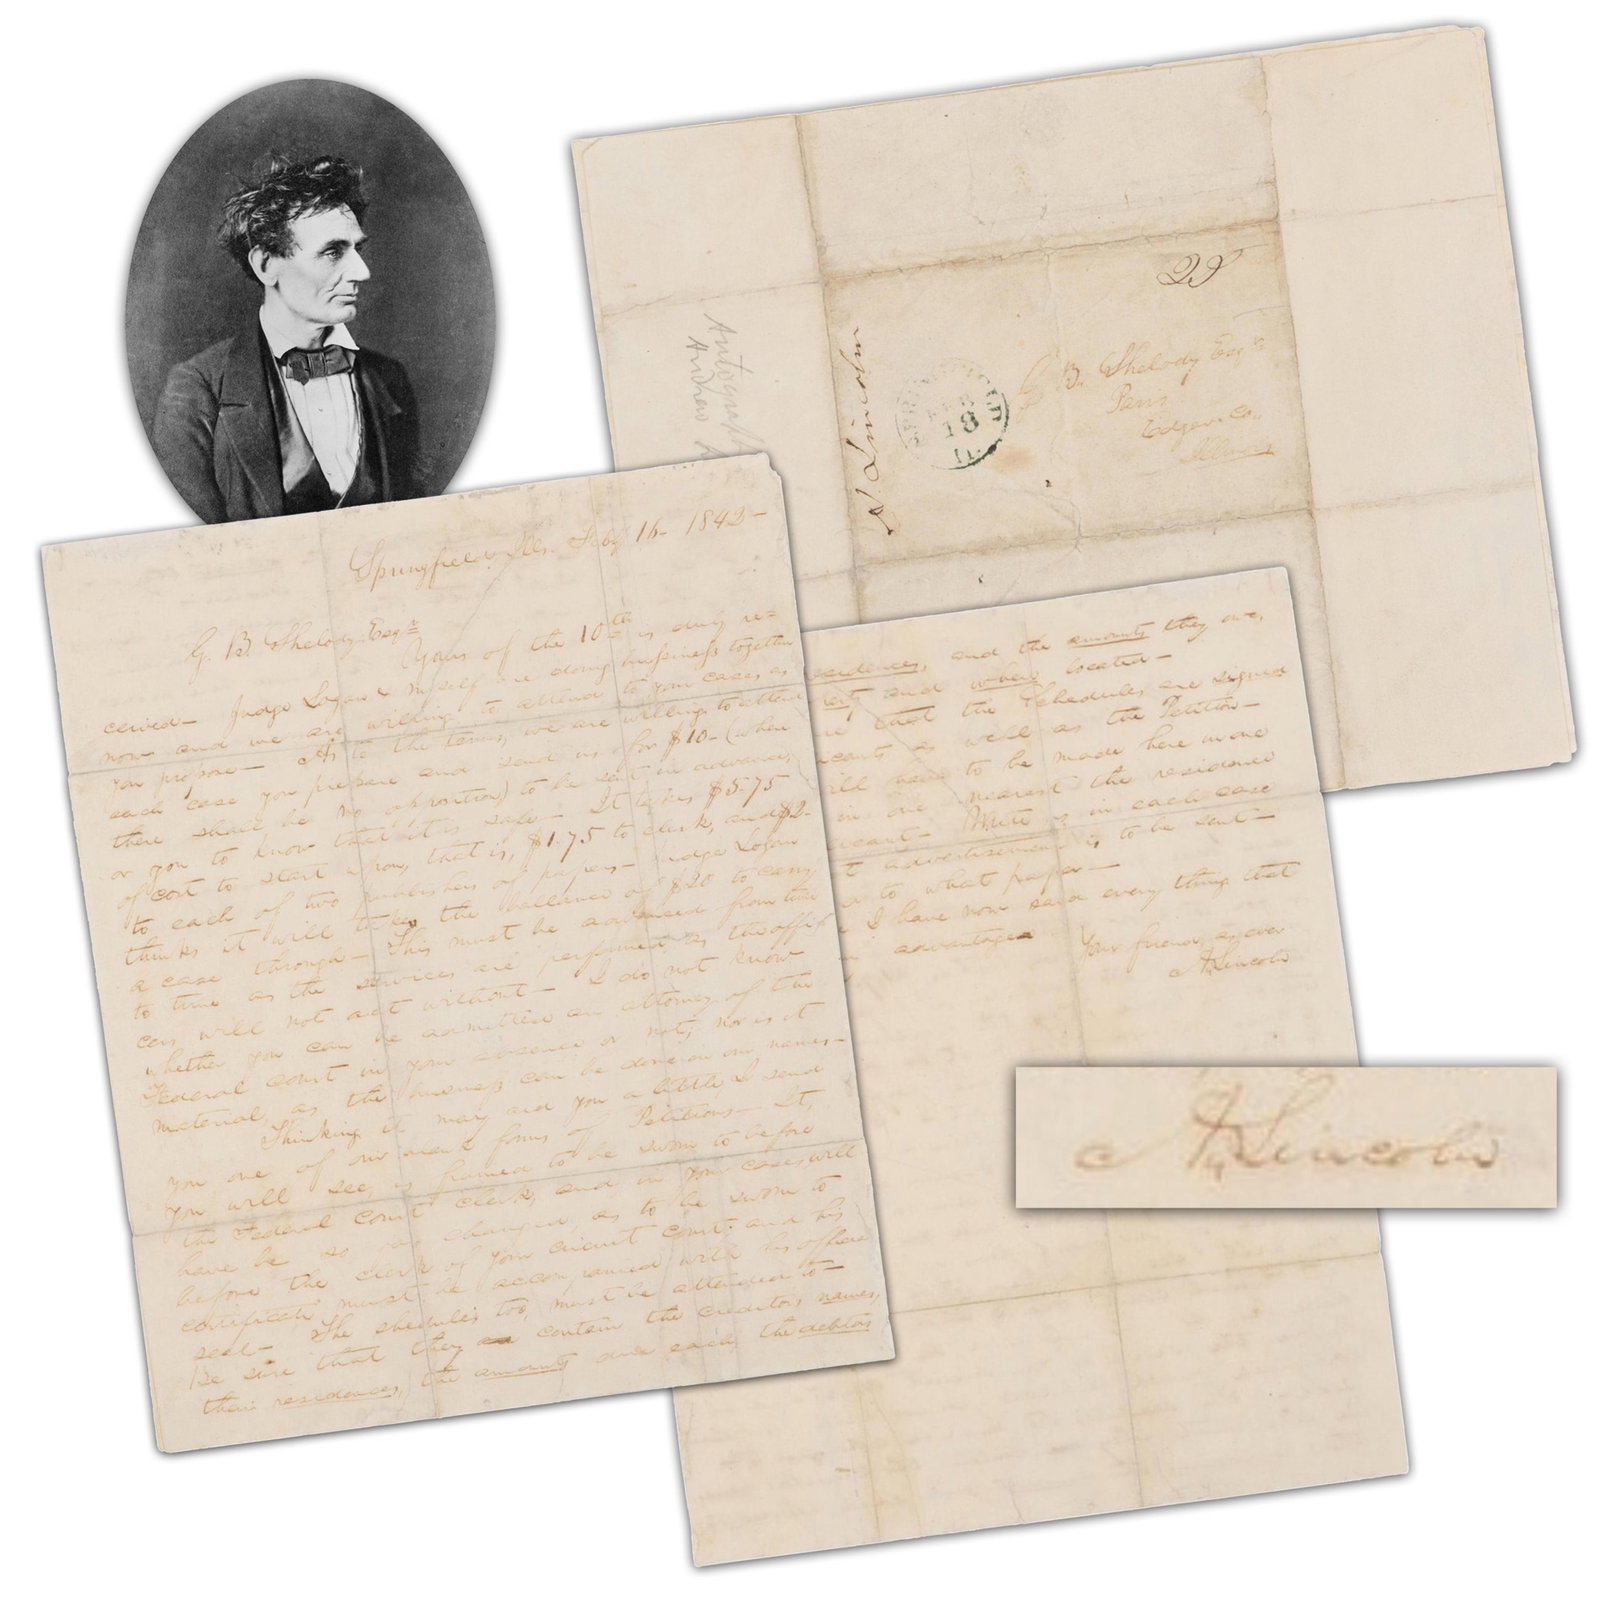 Springfield, Ills. Feby 16- 1842-
G. B. Shelody, Esqr.
Yours of the 10th is duly re-
ceived- Judge Logan & myself are doing business together
now and we are willing to attend to your cases as
you propose- As to the terms, we are willing to attend
each case you prepare and send us for $10- (when
there shall be no opposition) to be sent in advance,
or you to know that it is safe- It takes $5.75
of cost to start upon, that is, $1.75 to clerk, and $2-
to each of two publishers of papers- Judge Logan
thinks it will take the ballance of $20 to carry
a case through- This must be advanced from time
to time as the services are performed, as the offi
cers will not act without- I do not know
whether you can be admitted an attorney of the
Federal court in your absence or not; nor is it
material, as the business can be done in our names-
Thinking it may aid you a little, I send
you one of our blank forms of Petitions- It,
you will see, is framed to be sworn to before
the Federal court clerk, and in your cases will
have be so far changed, as to be sworn to
before the clerk of your circuit court; and his
certificate must be accompanied with his official
seal- The schedules too, must be attended to-
Be sure that they contain the creditors names,
their residences, the amounts due each, the debtors
residences, and the amounts they owe,
and where located-
that the Schedules are signed
as well as the Petition-
ill have to be made here in one
in one nearest the residence
Write us in each case
t advertisement is to be sent-
to what paper-
I have now said every thing that
advantage
Your friend, as ever
A. Lincoln
A. Lincoln
A. Lincoln
SPRINGFIELD
FEB
18
Il.
G. B. Shelody Esqr.
Paris
Edgar Co.
Illinois
Autograph
Andrew
A. Lincoln